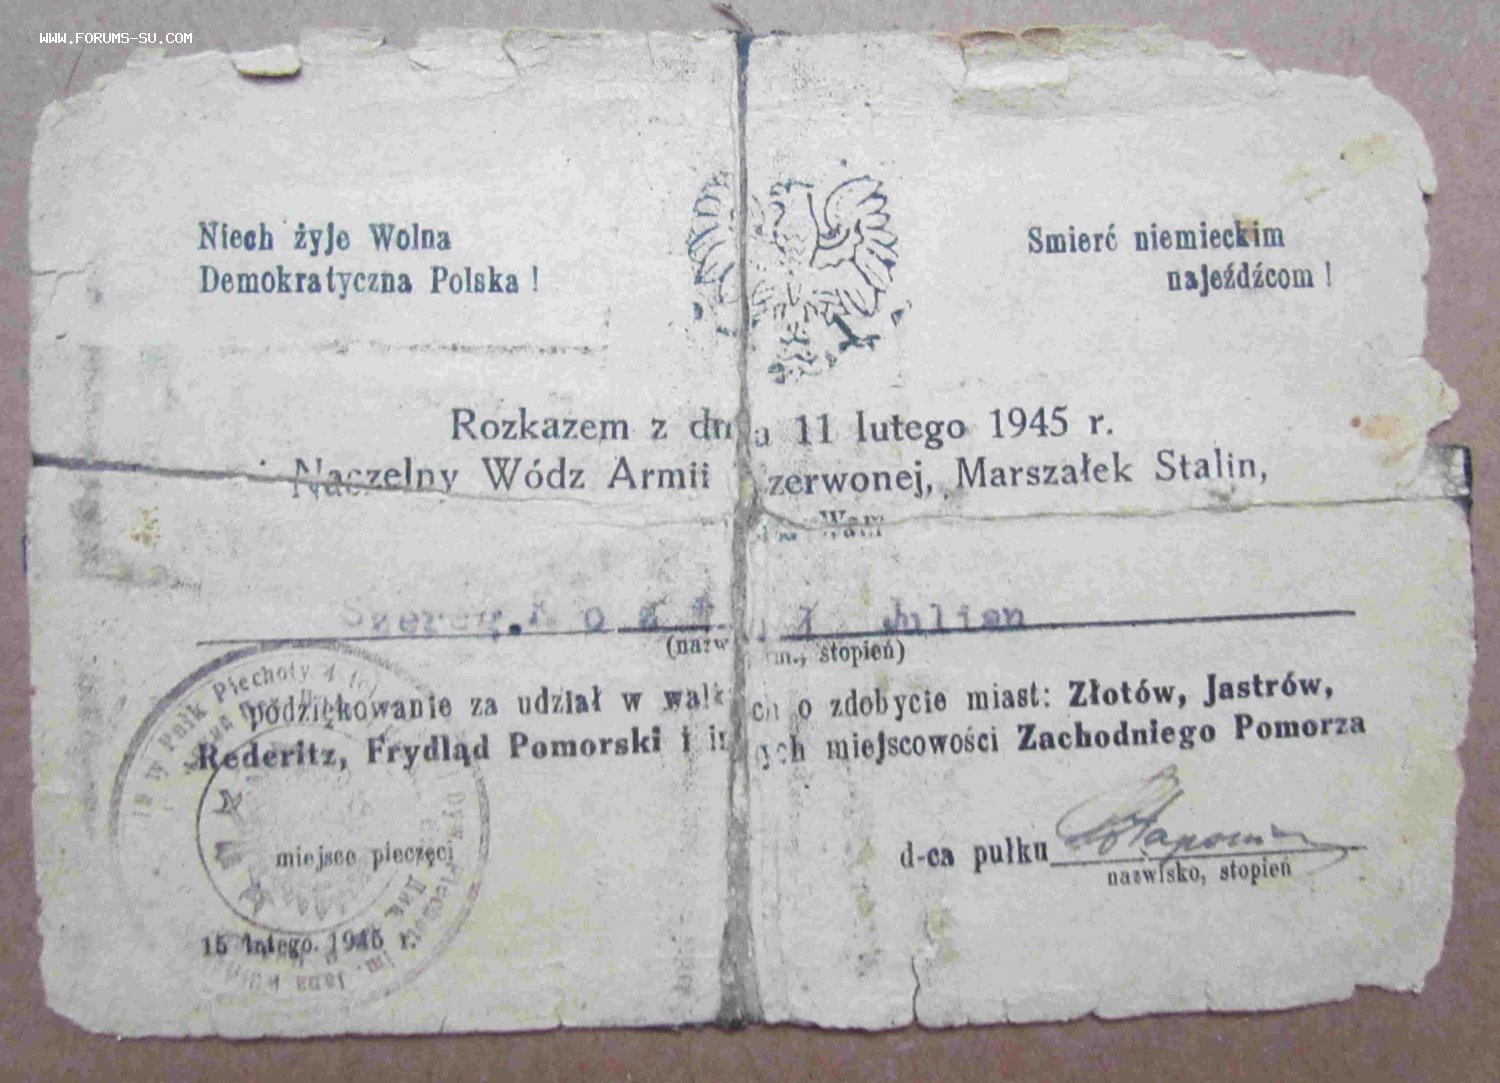 WWW.FORUMS-SU.COM
Niech żyje Wolna
Demokratyczna Polska !
Smierć niemieckim
najeźdźcom !
Rozkazem z dnia 11 lutego 1945 r.
Naczelny Wódz Armii Czerwonej, Marszałek Stalin,
Wam
Szereg. Julian
(nazw im., stopień)
podziękowanie za udział w walkach o zdobycie miast: Złotów, Jastrów,
Rederitz, Frydląd Pomorski i innych miejscowości Zachodniego Pomorza
Pułk Piechoty
miejsce pieczęci
d-ca pułku
nazwisko, stopień
15 lutego. 1945 r.